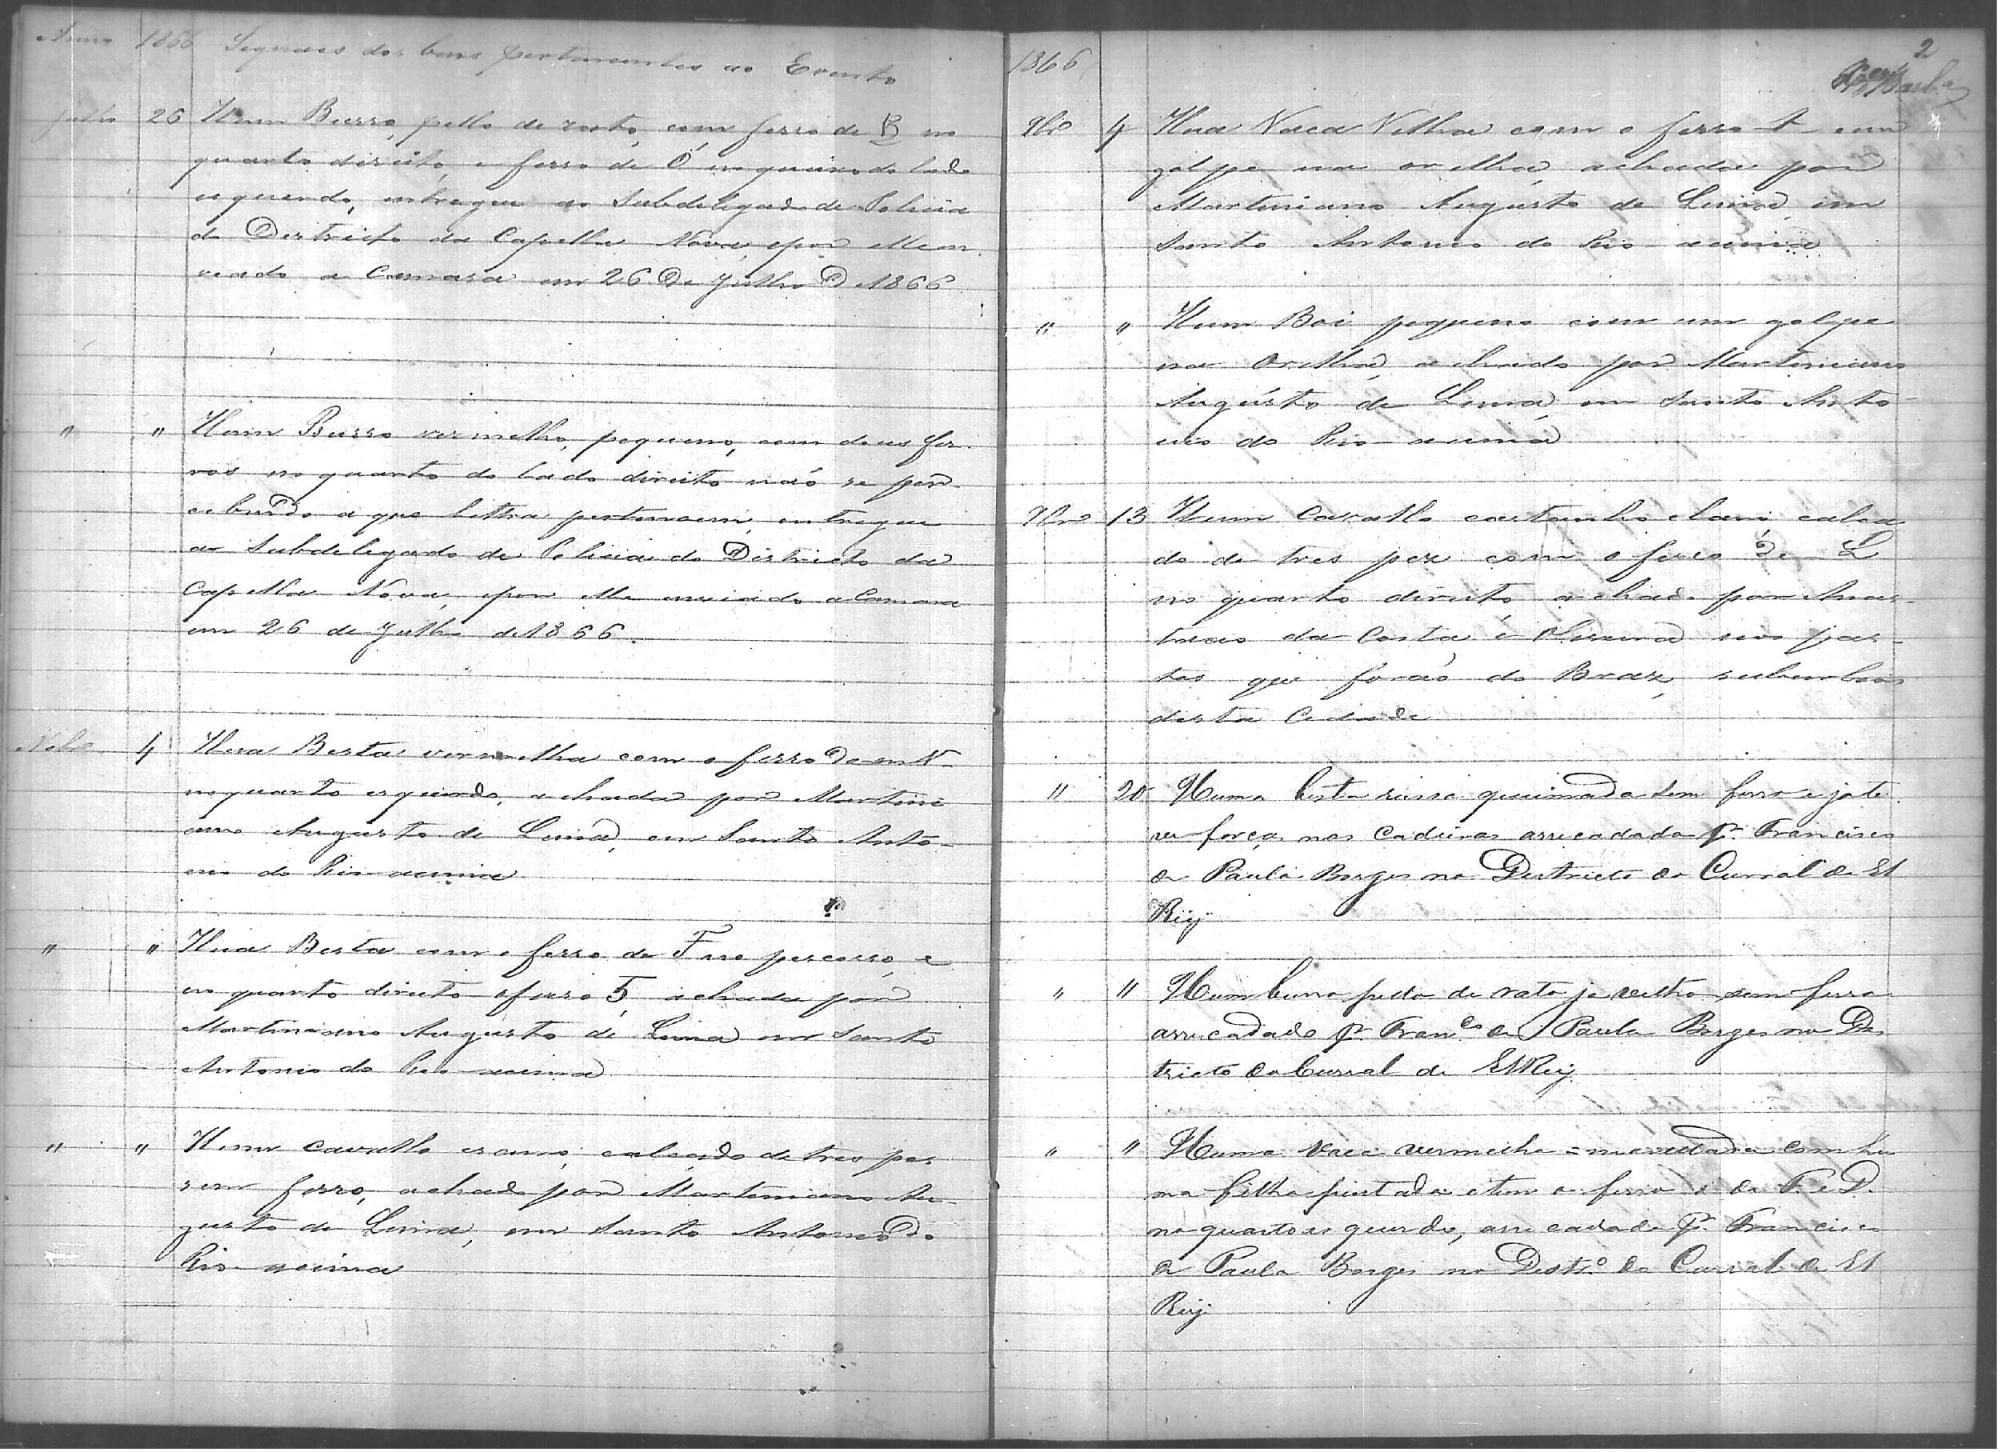 Anno 1866 Signaes dos bens pertencentes ao Evento
Julho 26 Hum Burro, pello de rato, com ferro de B no
quarto direito, e ferro de O no queixo do lado
esquerdo, entregue ao Subdelegado de Policia
do Districto da Capella Nova, e por elle en
viado a Camara em 26 De Julho De 1866
" " Hum Burro vermelho, pequeno, com dous fer-
ros no quarto do lado direito não se per-
cebendo a que lettra pertencem, entregue
ao Subdelegado de Policia do Districto da
Capella Nova, e por elle enviado a Camara
em 26 de Julho de 1866.
Nobro 4 Hua Besta vermelha com o ferro De
no quarto esquerdo, achada por Martini
ano Augusto de Lima, em Santo Anto-
nio do Rio-acima
" " Hua Besta com o ferro de F no pescosso, e
no quarto direito o ferro 5, achada por
Martiniano Augusto de Lima em Santo
Antonio do Rio-acima
" " Hum cavallo escuro, calçado de tres pes
sem ferro, achado por Martiniano Au-
gusto de Lima, em Santo Antonio Do
Rio-acima
1866
2
9bro 4 Hua Vaca Velha com o ferro t um
golpe na orelha, achada por
Martiniano Augusto de Lima, em
Santo Antonio do Rio-acima
" " Hum Boi pequeno com um golpe
na Orelha, achado por Martiniano
Augusto de Lima, em Santo Anto-
nio do Rio-acima
9bro 13 Hum Cavallo castanho claro, calça
do de tres pez com o ferro De L
no quarto direito achado por Anas-
tacio da Costa e Oliveira nos pas-
tos que forão do Braz, suburbios
desta Cidade
" 20 Huma besta russa queimada sem ferro e ja te
ve força nas cadeiras arrecadada pr. Francisco
de Paula Borges no Districto do Curral de El
Rey.
" " Hum burro pello de rato ja velho sem ferro
arrecadado pr. Franco. de Paula Borges no Dis
tricto do Curral de ElRey.
" " Huma vaca vermelha com hu
ma filha pintada e tem o ferro de P. e D.
no quarto esquerdo, arrecadada pr. Francisco
de Paula Borges no Distro. do Curral de El
Rey.